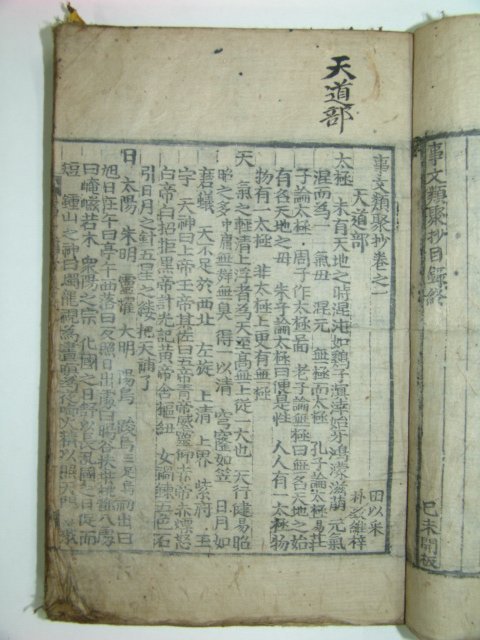 事文類聚抄目錄終
己未開板
天道部
事文類聚抄卷之一
天道部
田以采
朴致維梓
太極 未有天地之時混沌如鷄子溟涬始芽鴻濛滋萌 元氣
混而爲一 氣母 混元 無極而太極 孔子論太極易 莊
子論太極 周子作太極圖 老子論無極曰無名天地之始
有名天地之母 朱子論太極曰便是性 人人有一太極物
物有一太極 非太極上更有無極
天 氣之輕清上浮者爲天至高無上從一大也 天行健易昭
昭之多中庸無聲無臭 得一以清 穹窿如笠 日月如
磨蟻 天不足於西北 左旋 上清 上界 紫府 玉
字 天神曰上帝 其佐曰五帝靑帝感靈仰赤帝赤熛怒
白帝曰招拒黑帝計光記黃帝含樞紐 女媧鍊五色石
引日月之針五星之縷把天補了
日 太陽 朱明 靈曜 大明 陽烏 踆烏三足烏初出曰
旭日在午曰亭午西落曰反照日出處曰暘谷扶桑
曰崦嵫若木 衆陽之宗 化國之日舒以長亂國之日促而
短 鍾山之神曰燭龍視爲晝瞑爲夜 火精以照天門